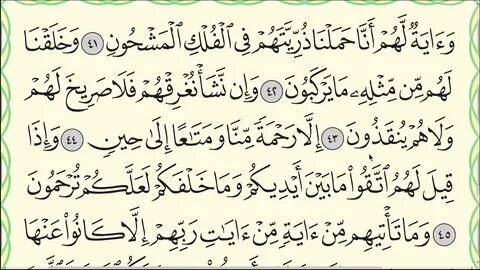 وَءَايَةٌ لَّهُمْ أَنَّا حَمَلْنَا ذُرِّيَّتَهُمْ فِي الْفُلْكِ الْمَشْحُونِ ٤١ وَخَلَقْنَا
لَهُم مِّن مِّثْلِهِ مَا يَرْكَبُونَ ٤٢ وَإِن نَّشَأْ نُغْرِقْهُمْ فَلَا صَرِيخَ لَهُمْ
وَلَا هُمْ يُنقَذُونَ ٤٣ إِلَّا رَحْمَةً مِّنَّا وَمَتَاعًا إِلَىٰ حِينٍ ٤٤ وَإِذَا
قِيلَ لَهُمُ اتَّقُوا مَا بَيْنَ أَيْدِيكُمْ وَمَا خَلْفَكُمْ لَعَلَّكُمْ تُرْحَمُونَ
٤٥ وَمَا تَأْتِيهِم مِّنْ ءَايَةٍ مِّنْ ءَايَاتِ رَبِّهِمْ إِلَّا كَانُوا عَنْهَا